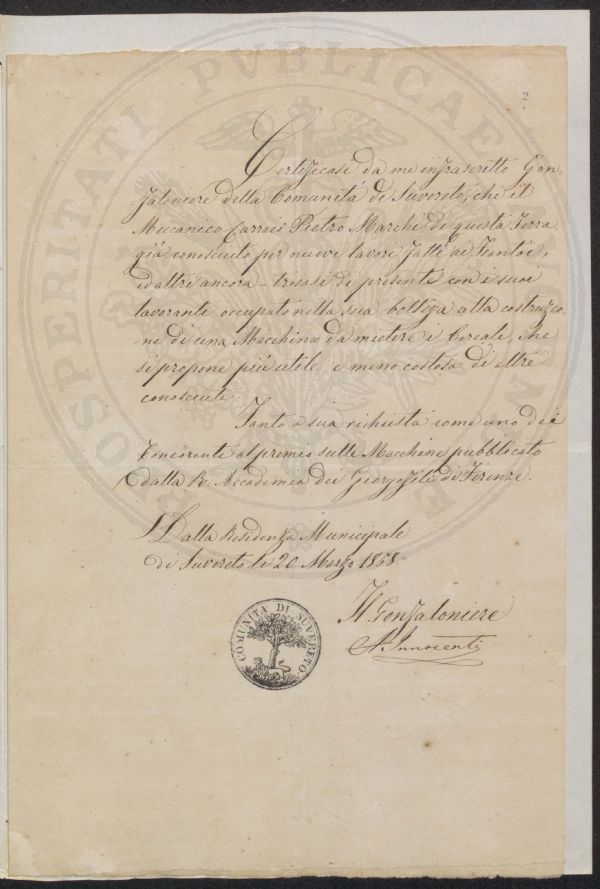 PROSPERITATI PVBLICAE
2
Certificasi da me infrascritto Gon-
faloniere della Comunità di Suvereto, che il
Meccanico Carraio Pietro Marchi di questa Terra
già conosciuto per nuovi lavori fatti ai Frantoi,
ed altri ancora - trovasi di presente con i suoi
lavoranti occupato nella sua bottega alla costruzio-
ne di una Macchina da mietere i Cereali, che
si propone più utile, e meno costosa di altre
conosciute.
Tanto a sua richiesta come uno dei
Concorenti al premio sulle Macchine pubblicato
dalla R. Accademia dei Georgofili di Firenze.
Dalla Residenza Municipale
di Suvereto li 20 Marzo 1858.
Il Gonfaloniere
Innocenti
COMUNITÀ DI SUVERETO